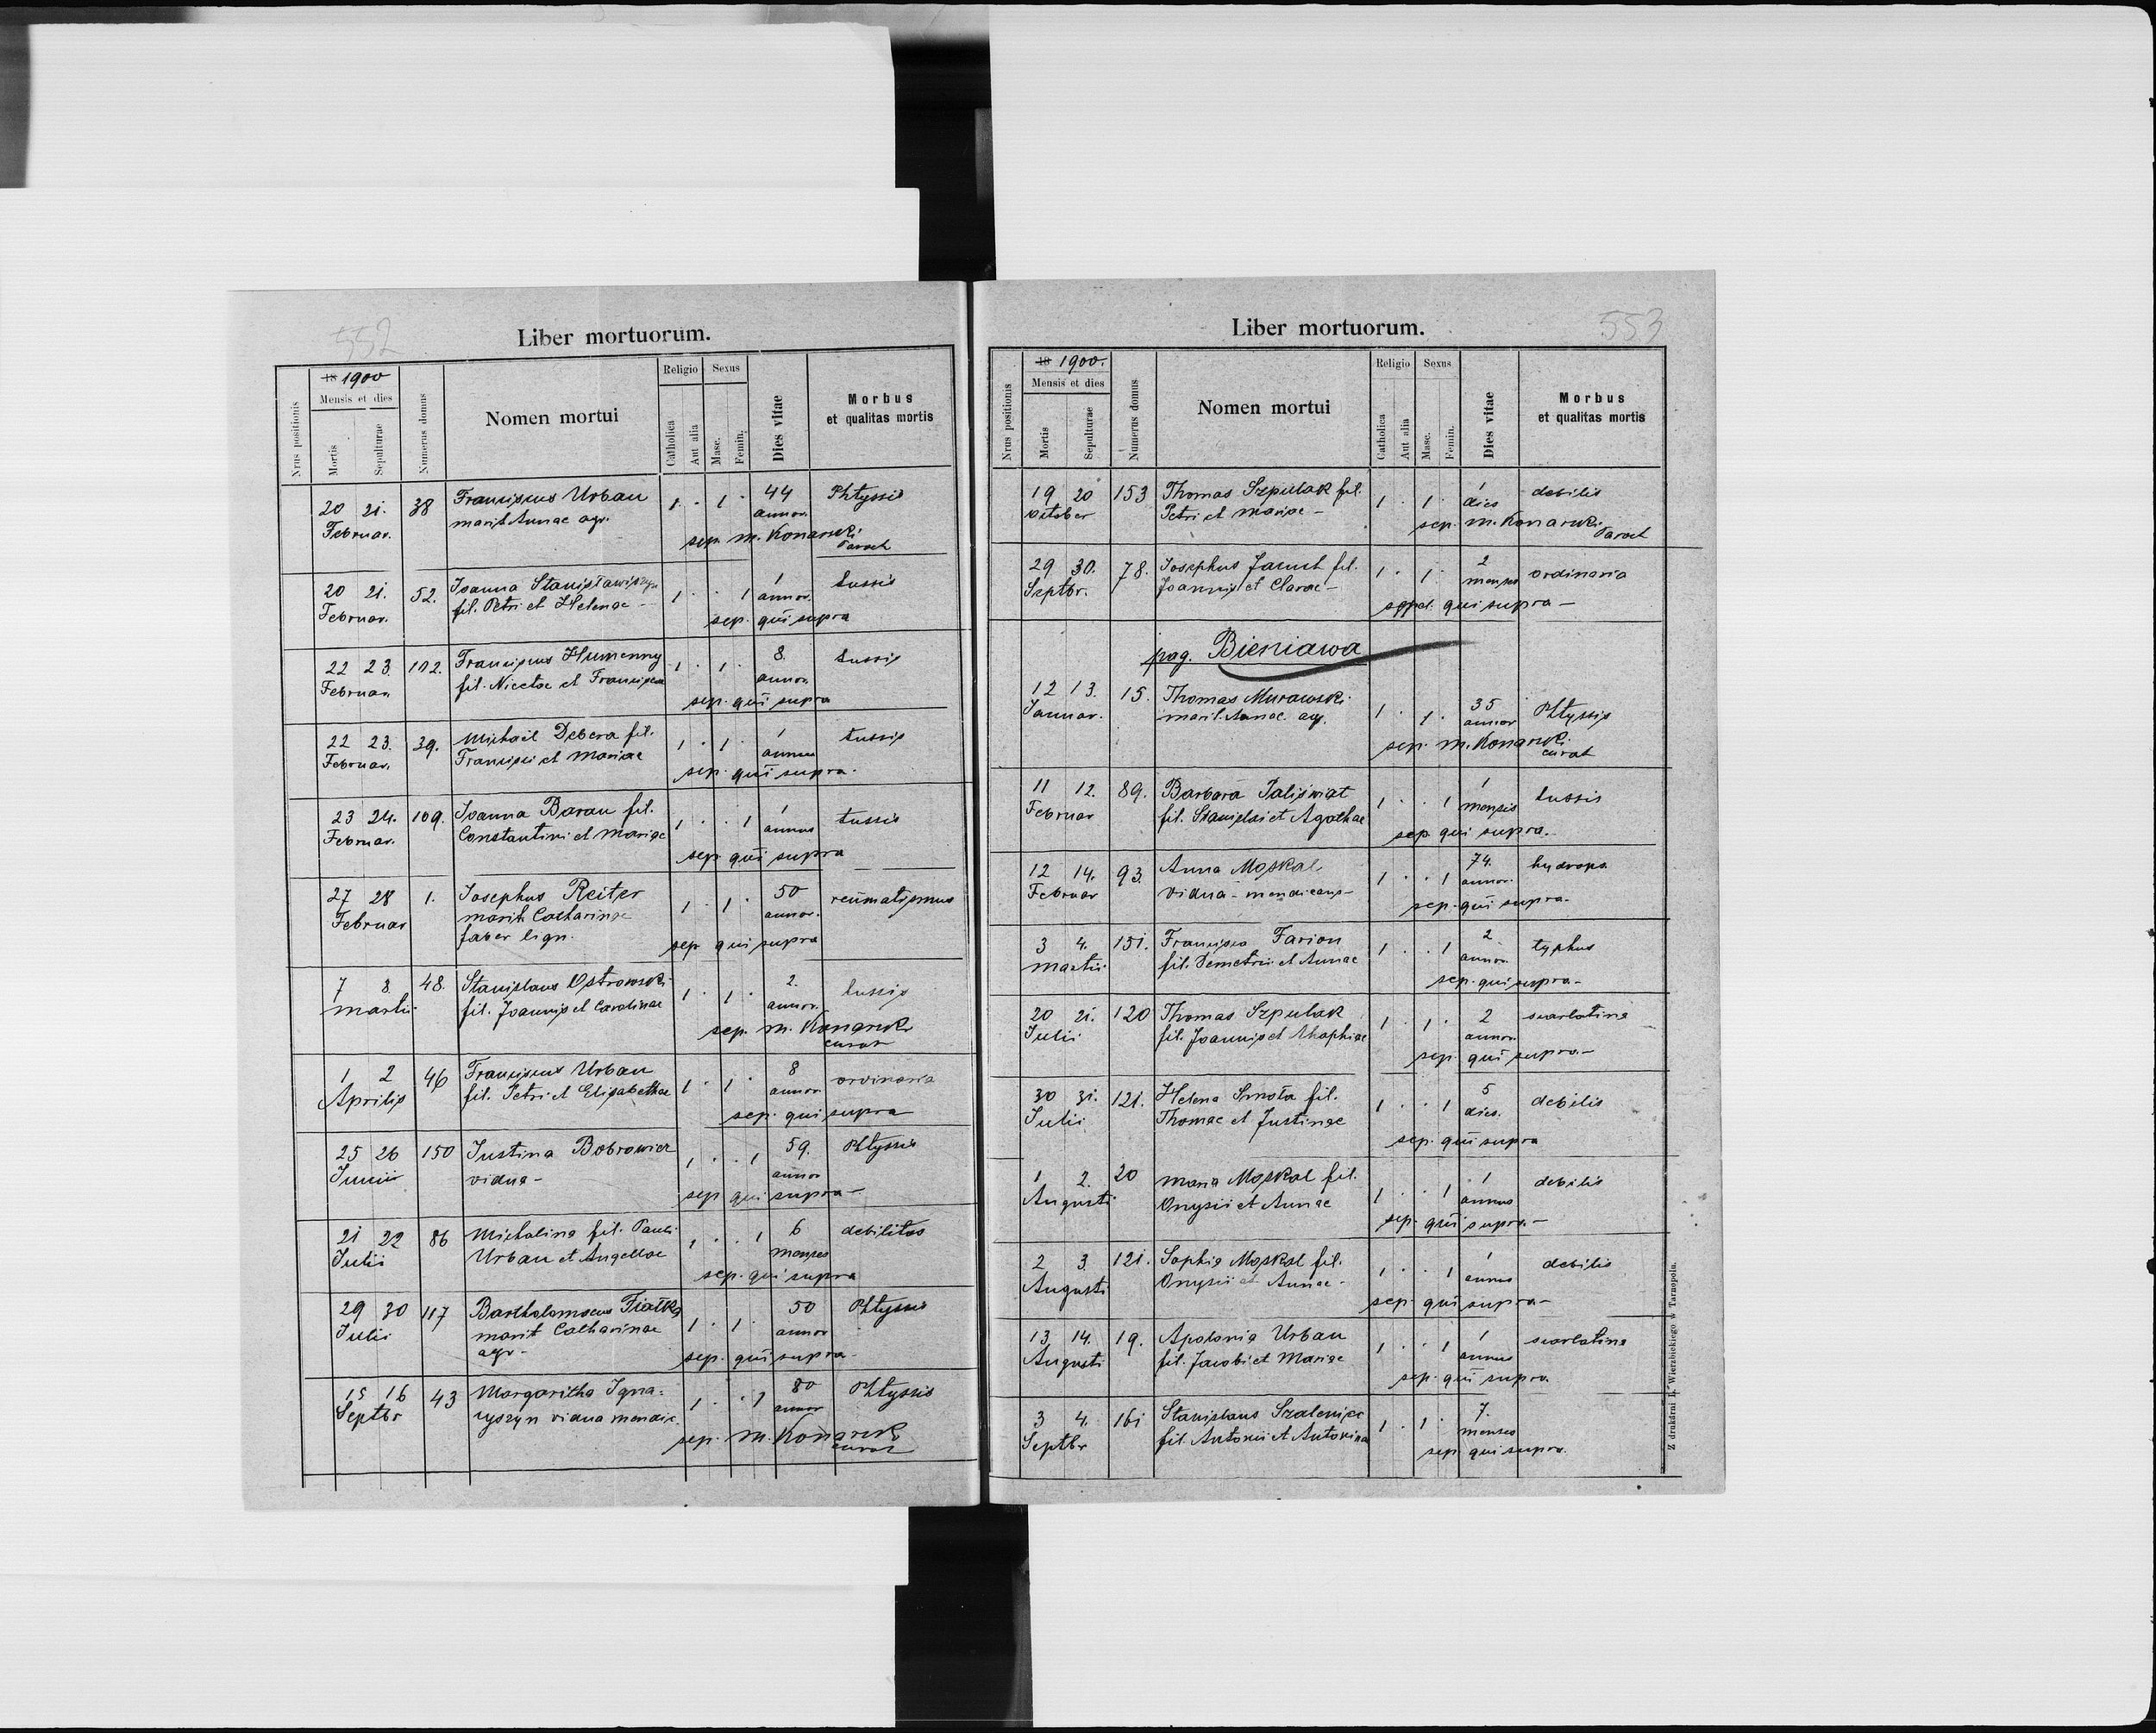 552
Liber mortuorum.
Nrus positionis
18 1900
Mensis et dies
Mortis
Sepulturae
Numerus domus
Nomen mortui
Religio
Catholica
Aut alia
Sexus
Masc.
Femin.
Dies vitae
Morbus
et qualitas mortis
20 21. 38 Franciscus Urban 1 . 1 . 44 Phtyssis
Februar. marit. Annae agr. annor.
sep. M. Konarski
Paroch
20 21. 52. Joanna 1 . . 1 1 tussis
Februar. fil. Petri et Helenae - annor.
sep. qui supra
22 23. 102. Franciscus Humenny 1 . 1 . 8. tussis
Februar. fil. Nicetae et annor.
sep. qui supra
22 23. 39. Michael Debera fil. 1 . 1 . 1 tussis
Februar. Francisci et Mariae annus
sep. qui supra.
23 24. 109. Joanna Baran fil. 1 . . 1 1 tussis
Februar. Constantini et Mariae annus
sep. qui supra
27 28 1. Josephus Reiter 1 . 1 . 50 reumatismus
Februar marit. Catharinae annor.
faber lign.
sep. qui supra
7 8. 48. Stanislaus Ostrowski 1 . 1 . 2. tussis
Martii fil. Joannis et Carolinae annor.
sep. M. Konarski
curat
1 2 46 Franciscus Urban 1 . 1 . 8 ordinaria
Aprilis fil. Petri et Elisabethae annor
sep. qui supra
25 26 150 Justina Bobrowicz 1 . . 1 59. Phtyssis
Junii vidua - annor
sep. qui supra -
21 22 86 Michalina fil. Pauli 1 . . 1 6 debilitas
Julii Urban et Angellae menses
sep. qui supra
29 30 117 Bartholomaeus Fiałka 1 . 1 . 50 Phtyssis
Julii marit. Catharinae annor
agr -
sep. qui supra -
15 16 43 Margaritha Igna= 1 . . 1 80 Phtyssis
Septbr ryszyn vidua mendic. annor
sep. M. Konarski
curat
553
Liber mortuorum.
Nrus positionis
18 1900.
Mensis et dies
Mortis
Sepulturae
Numerus domus
Nomen mortui
Religio
Catholica
Aut alia
Sexus
Masc.
Femin.
Dies vitae
Morbus
et qualitas mortis
19 20 153 Thomas Szpulak fil. 1 . 1 . 1 debilis
October Petri et Mariae - dies
sep. M. Konarski
Paroch
29 30. 78. Josephus fil. 1 . 1 . 2 ordinaria
Septbr. Joannis et Clarae - menses
qui supra -
pag. Bieniawa
12 13. 15. Thomas Murawski 1 . 1 . 35 Phtyssis
Januar. marit. Annae agr. annor
sep. M. Konarski
curat
11 12. 89. Barbara Paliświat 1 . . 1 1 tussis
Februar fil. Stanislai et Agathae mensis
sep. qui supra.
12 14. 93. Anna Moskal 1 . . 1 74. hydrops
Februar vidua - mendicans - annor.
sep. qui supra.
3 4. 151. Francisca Farion 1 . . 1 2 typhus
Martii fil. Demetrii et Annae annor.
sep. qui supra -
20 21. 120 Thomas Szpulak 1 . 1 . 2 scarlatina
Julii fil. Joannis et annor.
sep. qui supra -
30 31. 121. Helena Smota fil. 1 . . 1 5 debilis
Julii Thomae et Justinae dies.
sep. qui supra
1 2. 20 Maria Moskal fil. 1 . . 1 1 debilis
Augusti Onysii et Annae annus
sep. qui supra -
2 3. 121. Sophia Moskal fil. 1 . . 1 1 debilis
Augusti Onysii et Annae - annus
sep. qui supra -
13 14. 19. Apolonia Urban 1 . . 1 1 scarlatina
Augusti fil. Jacobi et Mariae annus
sep. qui supra
3 4. 161 Stanislaus 1 . 1 . 7.
Septbr fil. Antonii et Antonina menses
sep. qui supra.
Z drukarni L. Wierzbickiego w Tarnopolu.